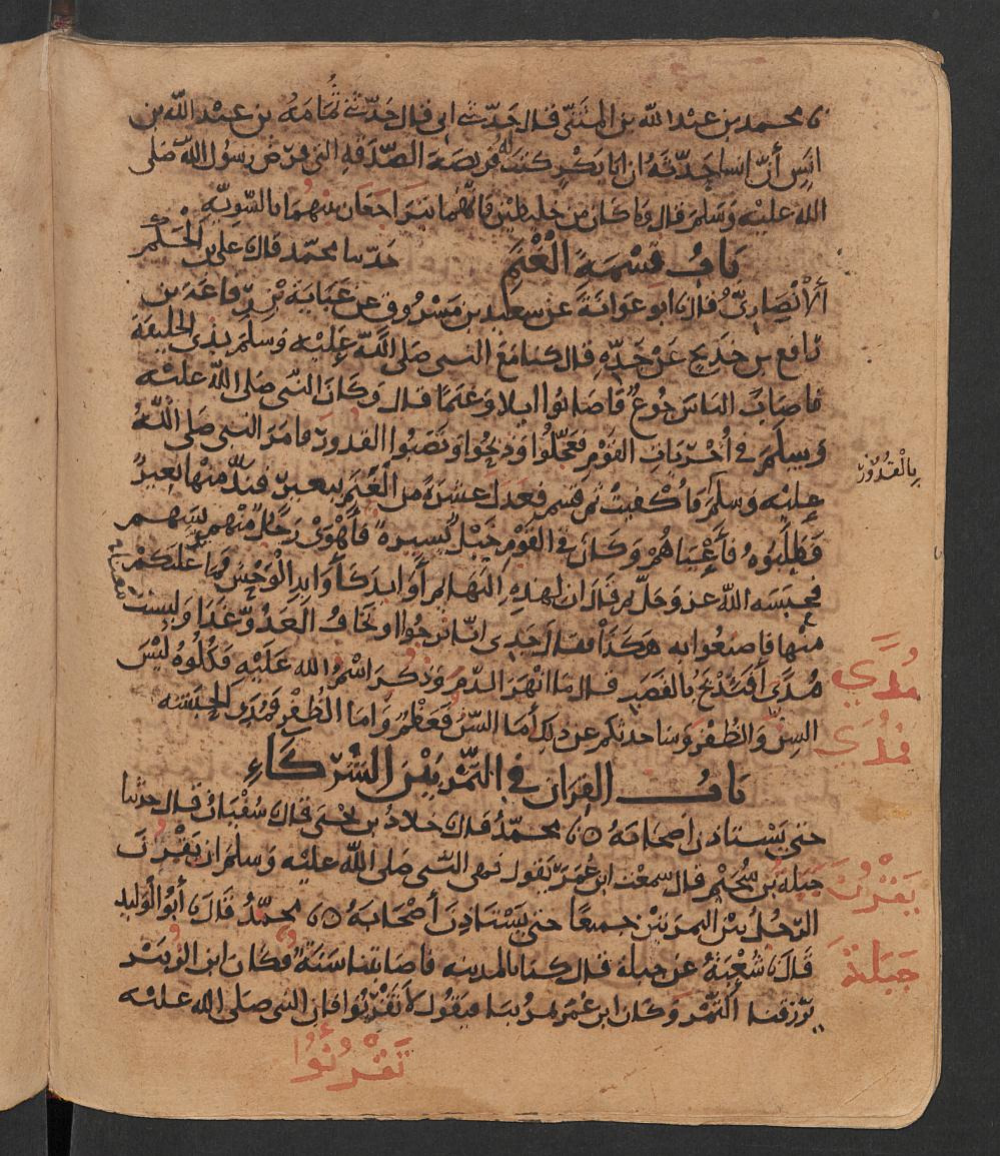 نا محمد بن عبد الله بن المثنى قال حدثني ابي قال حدثني ثُمَامَةُ بن عبد الله بن
انسٍ أنّ انسا حدّثَهُ ان ابا بكرٍ كتب له فريضة الصّدقه التي فرض رسول الله صَلى
الله عليْه وَسَلم قال وما كان من خليطيْن فانّهُما يتراجعَان بينهُمَا بالسّويّه
بَابُ قسْمَةِ الْغَنَمِ حدثنا محمّد قال نا علي بن الحَكم
الأنْصَاريّ قال نا ابو عَوَانَةَ عن سعيد بن مَسْرُوق عن عَبَايَة بْن رِفاعَةَ بن
رَافع بن خَديج عَنْ جَدّه قال كنا مَعَ النبي صَلى الله عليْه وسلم بذي الحليفة
فاصابَ الناسَ جُوعٌ فاصَابُوا ابلا وَغنَمًا قال وَكانَ النّبي صَلى الله عليْه
وَسلم في أُخْرَيَاتِ القَوْمِ فعَجّلُوا وَذبحُوا وَنصَبُوا القدورَ فامَرَ النبي صَلى اللهُ
بِالْقُدُوْرِ
عليْه وَسلم فاُكْفِئتْ ثم قسَم فعدَل عشرَةً من الغَنَم ببعيرٍ فندّ منْها بعيرٌ
فَطلَبُوهُ فأَعْيَاهُمْ وَكانَ في القَوْم خَيْلٌ يَسيرةٌ فأَهْوَىْ رَجُلٌ منْهم بسَهم
فحبَسَه الله عز وَجَل ثم قال ان لهذهِ البَهائم أَوَابدَ كَأَوَابدِ الْوَحْش فما غلبَكمْ
منْها فاصنعُوا به هَكذَا فقال جَدي انّا نرجُوا او نخافُ العَدُوّ غَدًا وَليست
مُدًى أفنذبَحُ بالقصَب قال مَا انْهَرَ الدّمَ وَذُكرَ اسْمُ الله عَلَيْهِ فكُلُوهُ ليْسَ
مُدَى
السنّ وَالظُفْرَ وَسَاحدثكم عن ذلك أمَا السّنُّ فعَظْمٌ وَامَا الظُفْرُ فمُدَى الحبَشَه
فمُدَى
بَابُ القِرَان في التّمْر بَيْنَ الشُّرَكَاءِ
حتى يَسْتاذن اصحَابَهُ نا محمّدٌ قال نا خلادُ بن يحْيى قال نا سُفْيَانُ قال حدثنا
جَبَلة بْن سُحَيْم قال سمعْت ابن عُمَر يَقول نهَى النّبي صَلى الله عليْه وَسَلم ان يَقْرُنَ
يَقْرُنَ
الرّجُلُ بيْن التمرَتيْن جميعًا حتى يَسْتَاذِنَ أَصْحَابَهُ نا محمّدٌ قال نا أبُو الْوليد
قال نا شُعْبَةُ عن جَبَلة قال كنا بالمدينه فاصَابتنا سَنَةٌ فكان ابن الزُّبَيْر
جَبَلَةَ
يَرْزقنا التَّمْرَ وَكان ابن عُمَر يمرُّ بنا فيَقُول لا تَقْرُنُوا فان النبي صَلى الله عليْه
تَقْرُنُوا